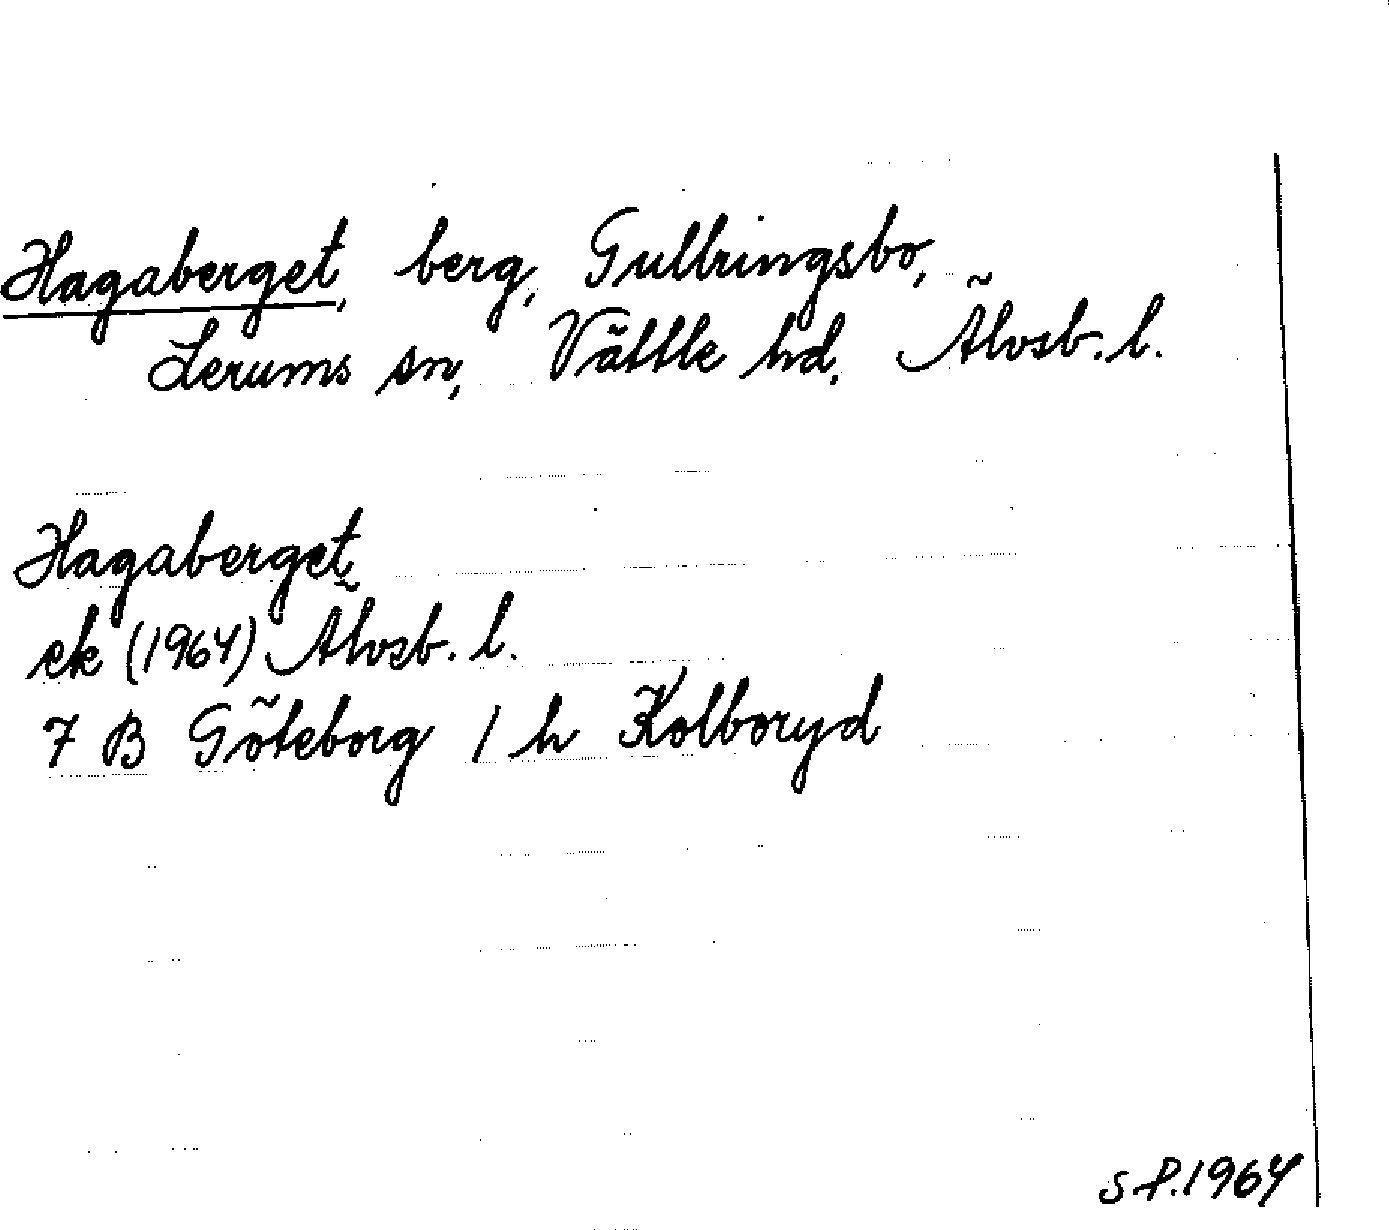 Hagaberget, berg, Gullringsbo,
Lerums sn, Vättle hd, Älvsb. l.
Hagaberget
ek (1964) Älvsb. l.
7 B Göteborg 1 h Kolboryd
S.P. 1964